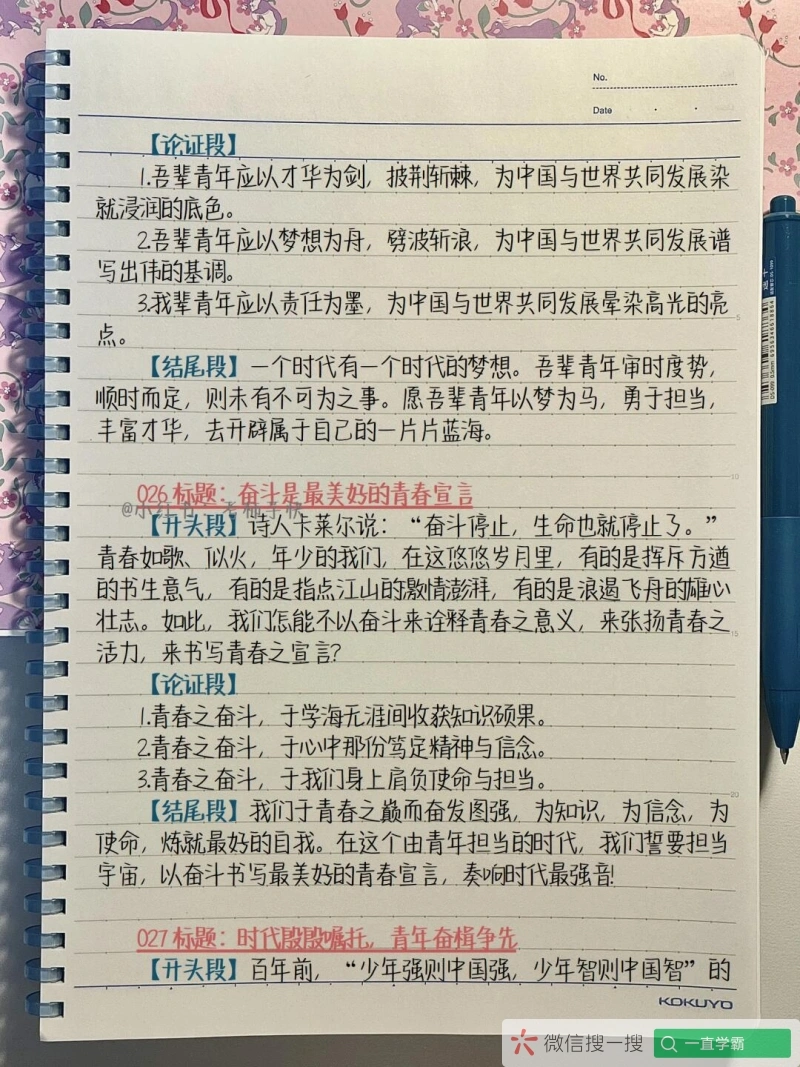 No.
Date
【论证段】
1.吾辈青年应以才华为剑，披荆斩棘，为中国与世界共同发展染
就浸润的底色。
2.吾辈青年应以梦想为舟，劈波斩浪，为中国与世界共同发展谱
写出伟的基调。
3.我辈青年应以责任为墨，为中国与世界共同发展晕染高光的亮
点。
【结尾段】一个时代有一个时代的梦想。吾辈青年审时度势，
顺时而定，则未有不可为之事。愿吾辈青年以梦为马，勇于担当，
丰富才华，去开辟属于自己的一片片蓝海。
026标题：奋斗是最美好的青春宣言
【开头段】诗人卡莱尔说：“奋斗停止，生命也就停止了。”
青春如歌、似火，年少的我们，在这悠悠岁月里，有的是挥斥方遒
的书生意气，有的是指点江山的激情澎湃，有的是浪遏飞舟的雄心
壮志。如此，我们怎能不以奋斗来诠释青春之意义，来张扬青春之
活力，来书写青春之宣言？
【论证段】
1.青春之奋斗，于学海无涯间收获知识硕果。
2.青春之奋斗，于心中那份笃定精神与信念。
3.青春之奋斗，于我们身上肩负使命与担当。
【结尾段】我们于青春之巅而奋发图强，为知识，为信念，为
使命，炼就最好的自我。在这个由青年担当的时代，我们誓要担当
宇宙，以奋斗书写最美好的青春宣言，奏响时代最强音！
027标题：时代殷殷嘱托，青年奋楫争先
【开头段】百年前，“少年强则中国强，少年智则中国智”的
KOKUYO
微信搜一搜
一直学霸